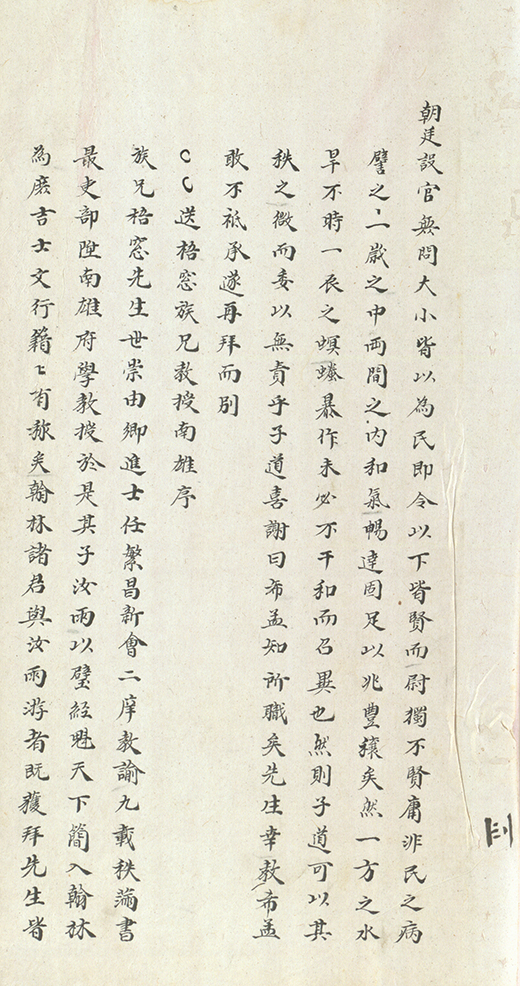 朝廷設官無問大小皆以為民即令以下皆賢而尉獨不賢庸非民之病
譬之一歲之中両間之内和氣暢達固足以兆豐穰矣然一方之水
旱不時一辰之螟螣暴作未必不干和而召異也然則子道可以其
秩之微而委以無責乎子道喜謝曰布孟知所職矣先生幸教布孟
敢不祗承遂再拜而別
送梧窓族兄教授南雄序
族兄梧窓先生世崇由鄉進士任繁昌新會二庠教諭九載秩滿書
最吏部陞南雄府學教授於是其子汝雨以璧經魁天下簡入翰林
為庶吉士文行籍〻有称矣翰林諸君與汝雨游者既獲拜先生皆